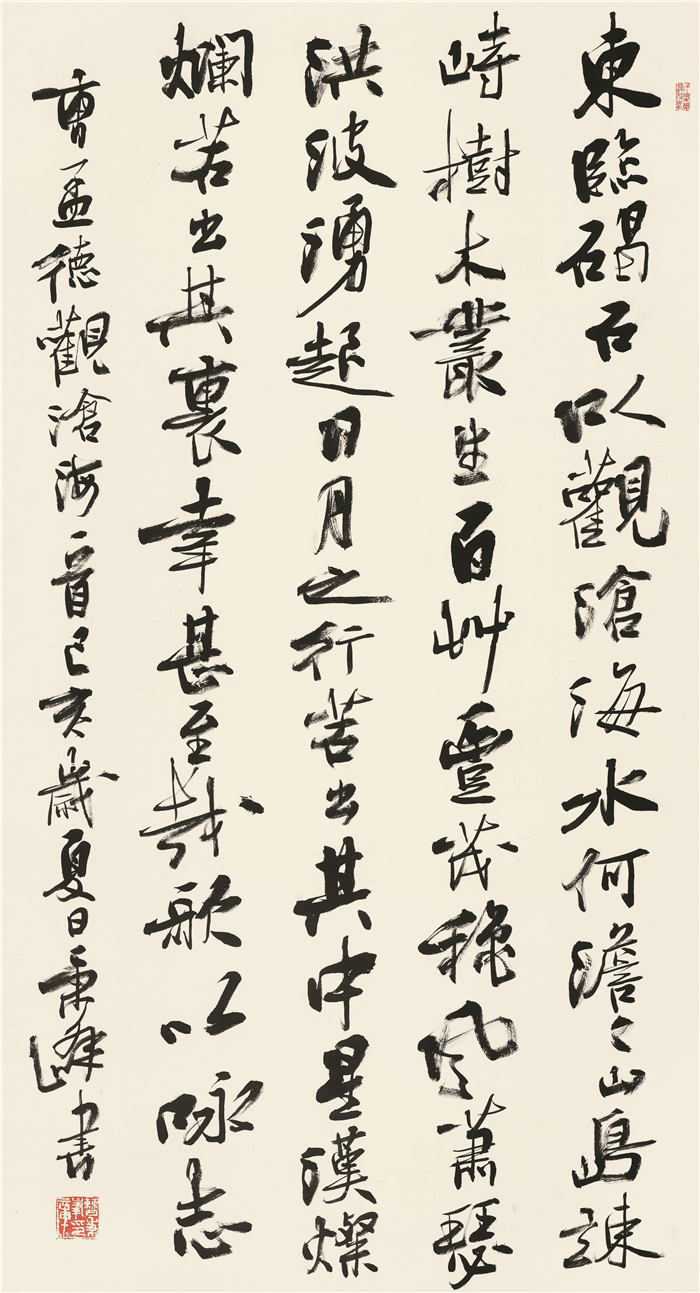 東臨碣石以觀滄海水何澹々山島竦
峙樹木叢生百艸豐茂穐風蕭瑟
洪波湧起日月之行若出其中星漢燦
爛若出其裏幸甚至哉歌以咏志
曹孟德觀滄海一首己亥歲夏日秉峰書